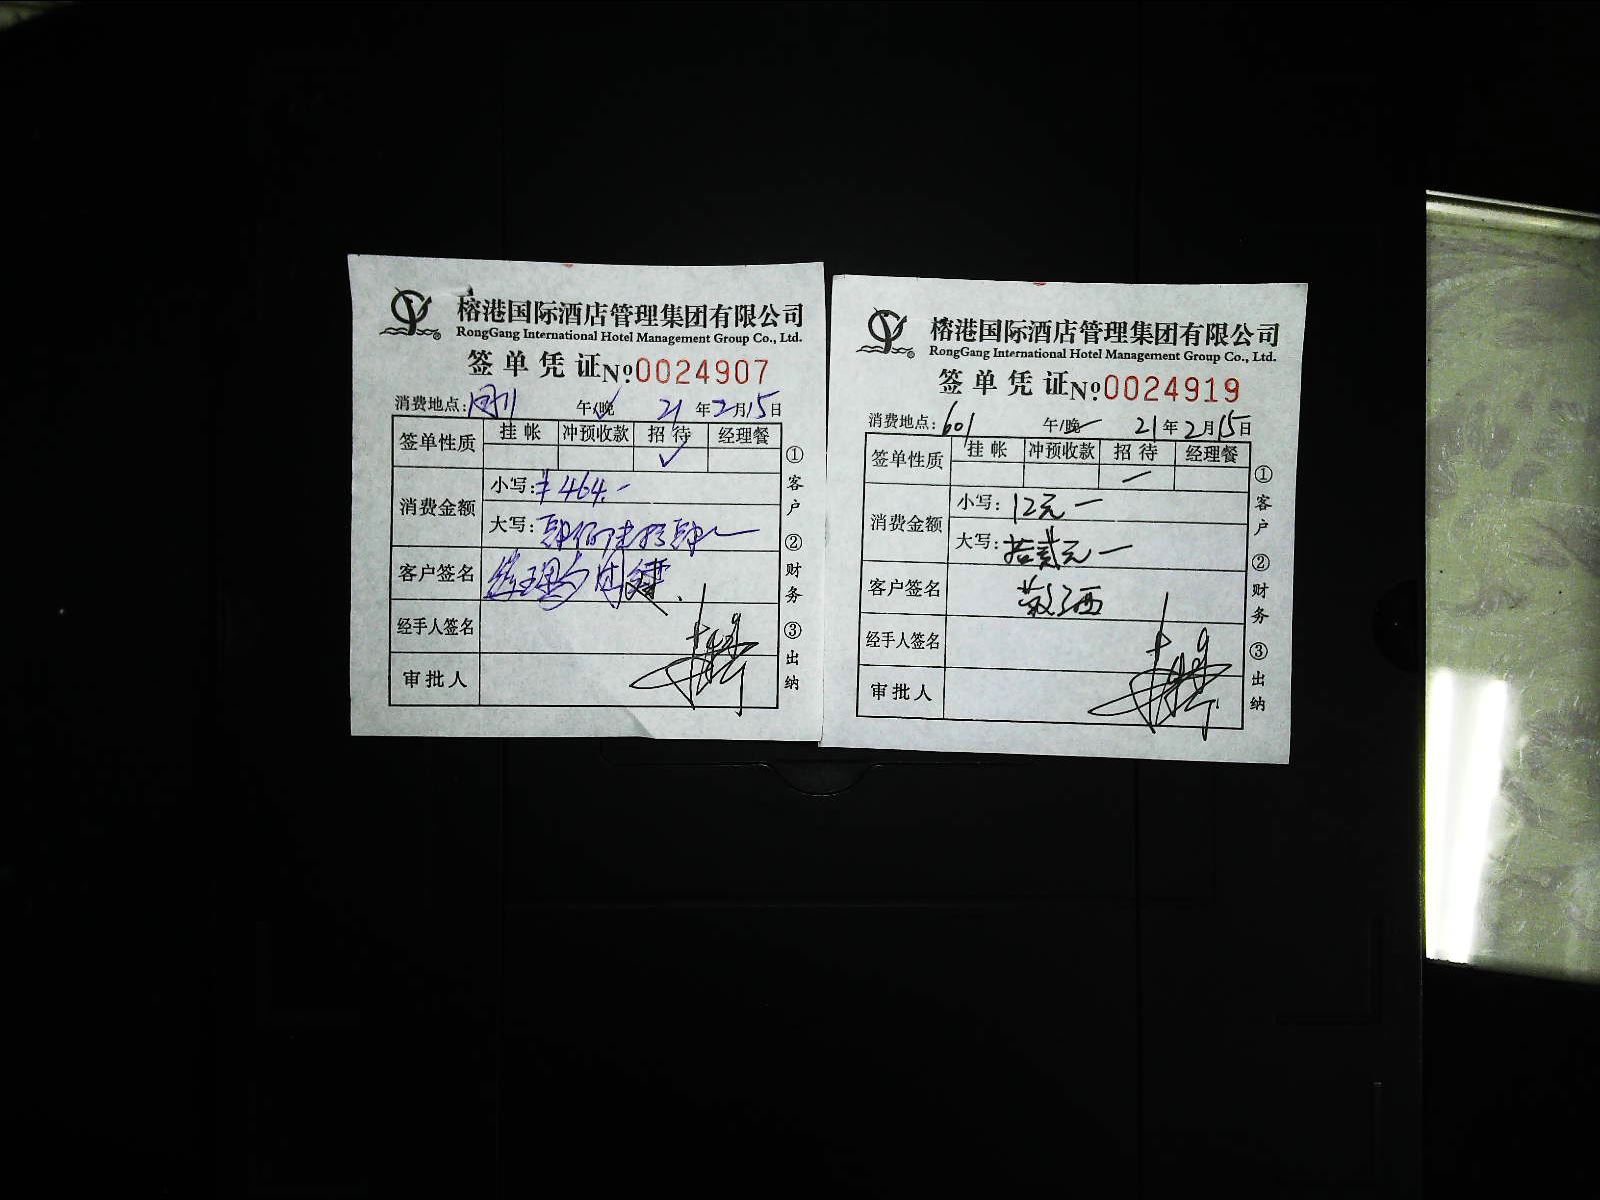 榕港国际酒店管理集团有限公司
RongGang International Hotel Management Group Co., Ltd.
签单凭证 №0024907
消费地点: 午/晚 21年2月15日
签单性质 挂帐 冲预收款 招待 经理餐
✓
消费金额
小写: ¥464.-
大写: 肆佰陆拾肆
客户签名
经手人签名
审批人
①客户 ②财务 ③出纳
榕港国际酒店管理集团有限公司
RongGang International Hotel Management Group Co., Ltd.
签单凭证 №0024919
消费地点: 601 午/晚 21年2月15日
签单性质 挂帐 冲预收款 招待 经理餐
消费金额
小写: 12元一
大写: 拾贰元一
客户签名 敬酒
经手人签名
审批人
①客户 ②财务 ③出纳